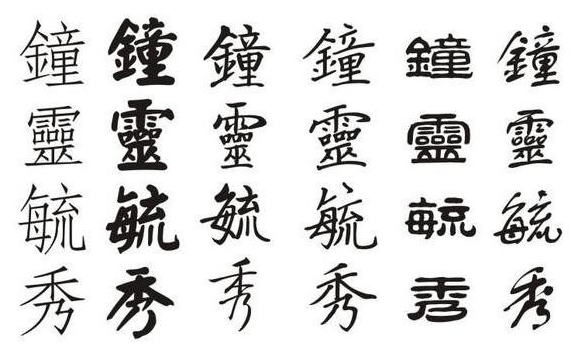 鐘鐘鐘鐘鐘鐘
靈靈靈靈靈靈
毓毓毓毓毓毓
秀秀秀秀秀秀